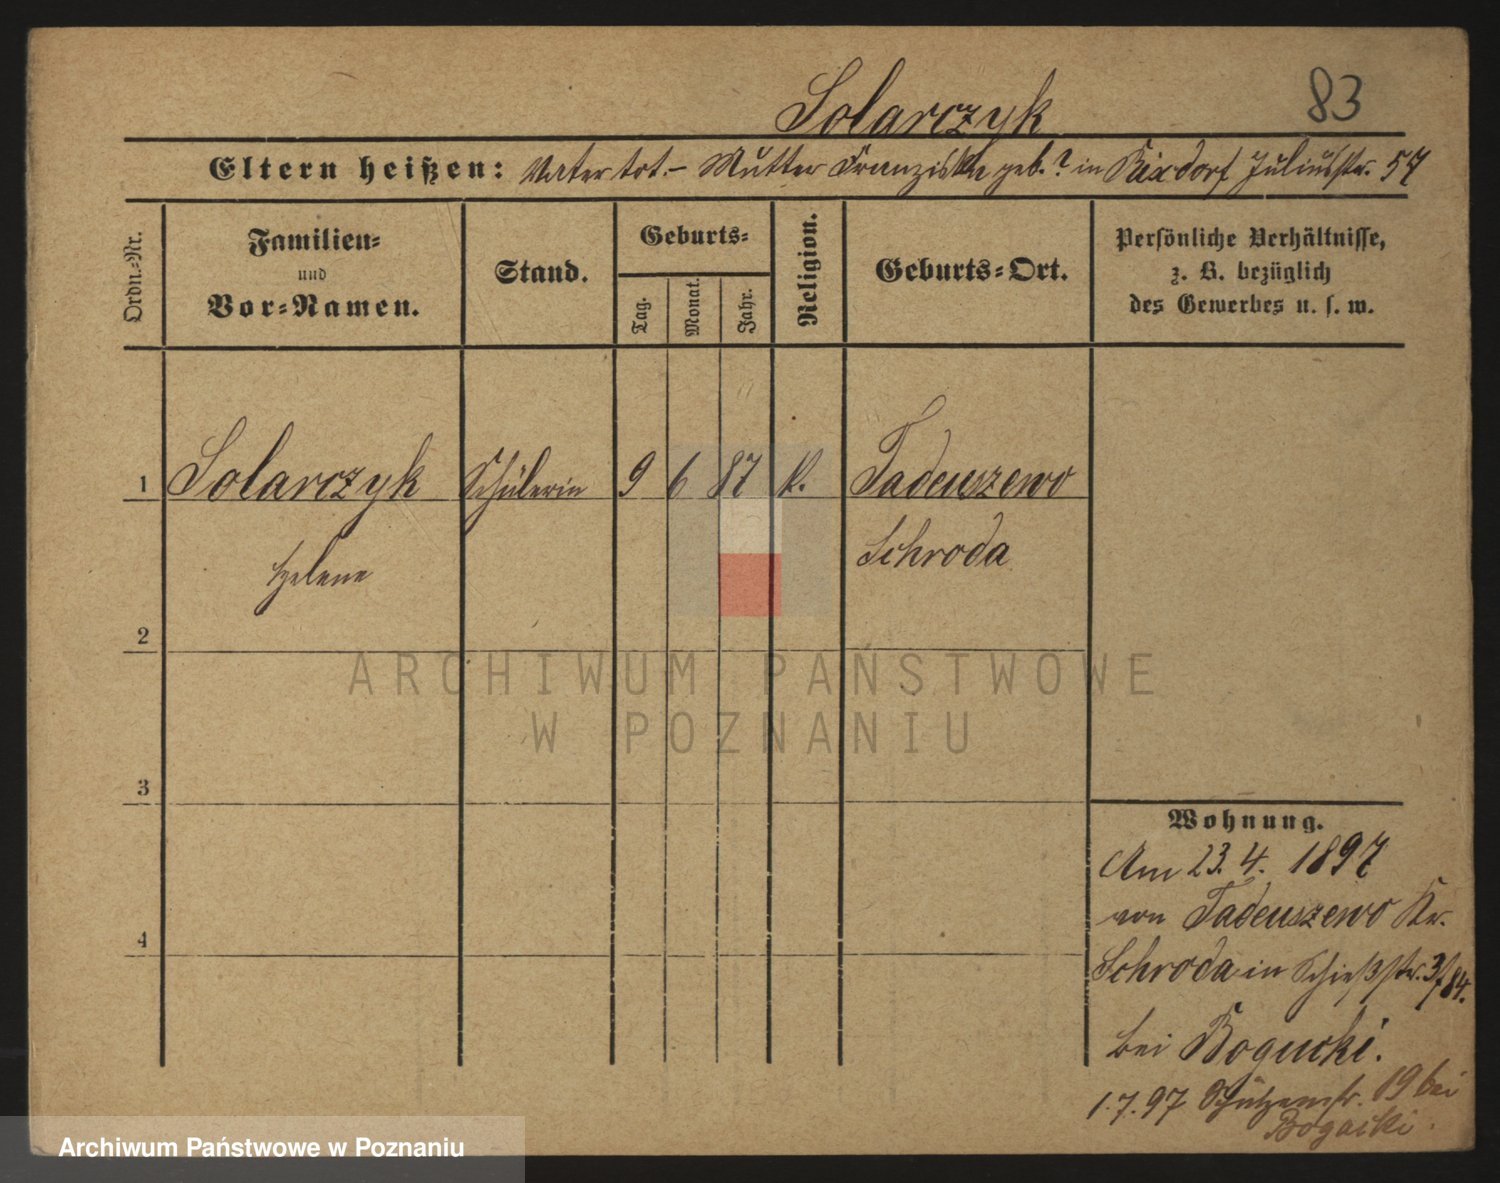 83
Solarczyk
Eltern heißen: Vater tot. – Mutter Franziska geb. ? in Rixdorf Juliusstr. 57
Ordn.-Nr.
Familien-
und
Vor-Namen.
Stand.
Geburts-
Tag.
Monat.
Jahr.
Religion.
Geburts-Ort.
Persönliche Verhältnisse,
z. B. bezüglich
des Gewerbes u. s. w.
1 Solarczyk Schülerin 9 6 87 k. Tadeuszewo
Helene Schroda
2
3
4
ARCHIWUM PAŃSTWOWE
W POZNANIU
Wohnung.
Am 23. 4. 1897
von Tadeuszewo Kr.
Schroda in Schießstr. 3/84.
bei Bogucki.
1.7.97 Schützenstr. 19 bei
Bogacki.
Archiwum Państwowe w Poznaniu